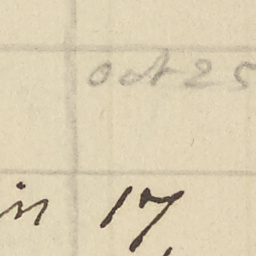 Oct 25
in 17